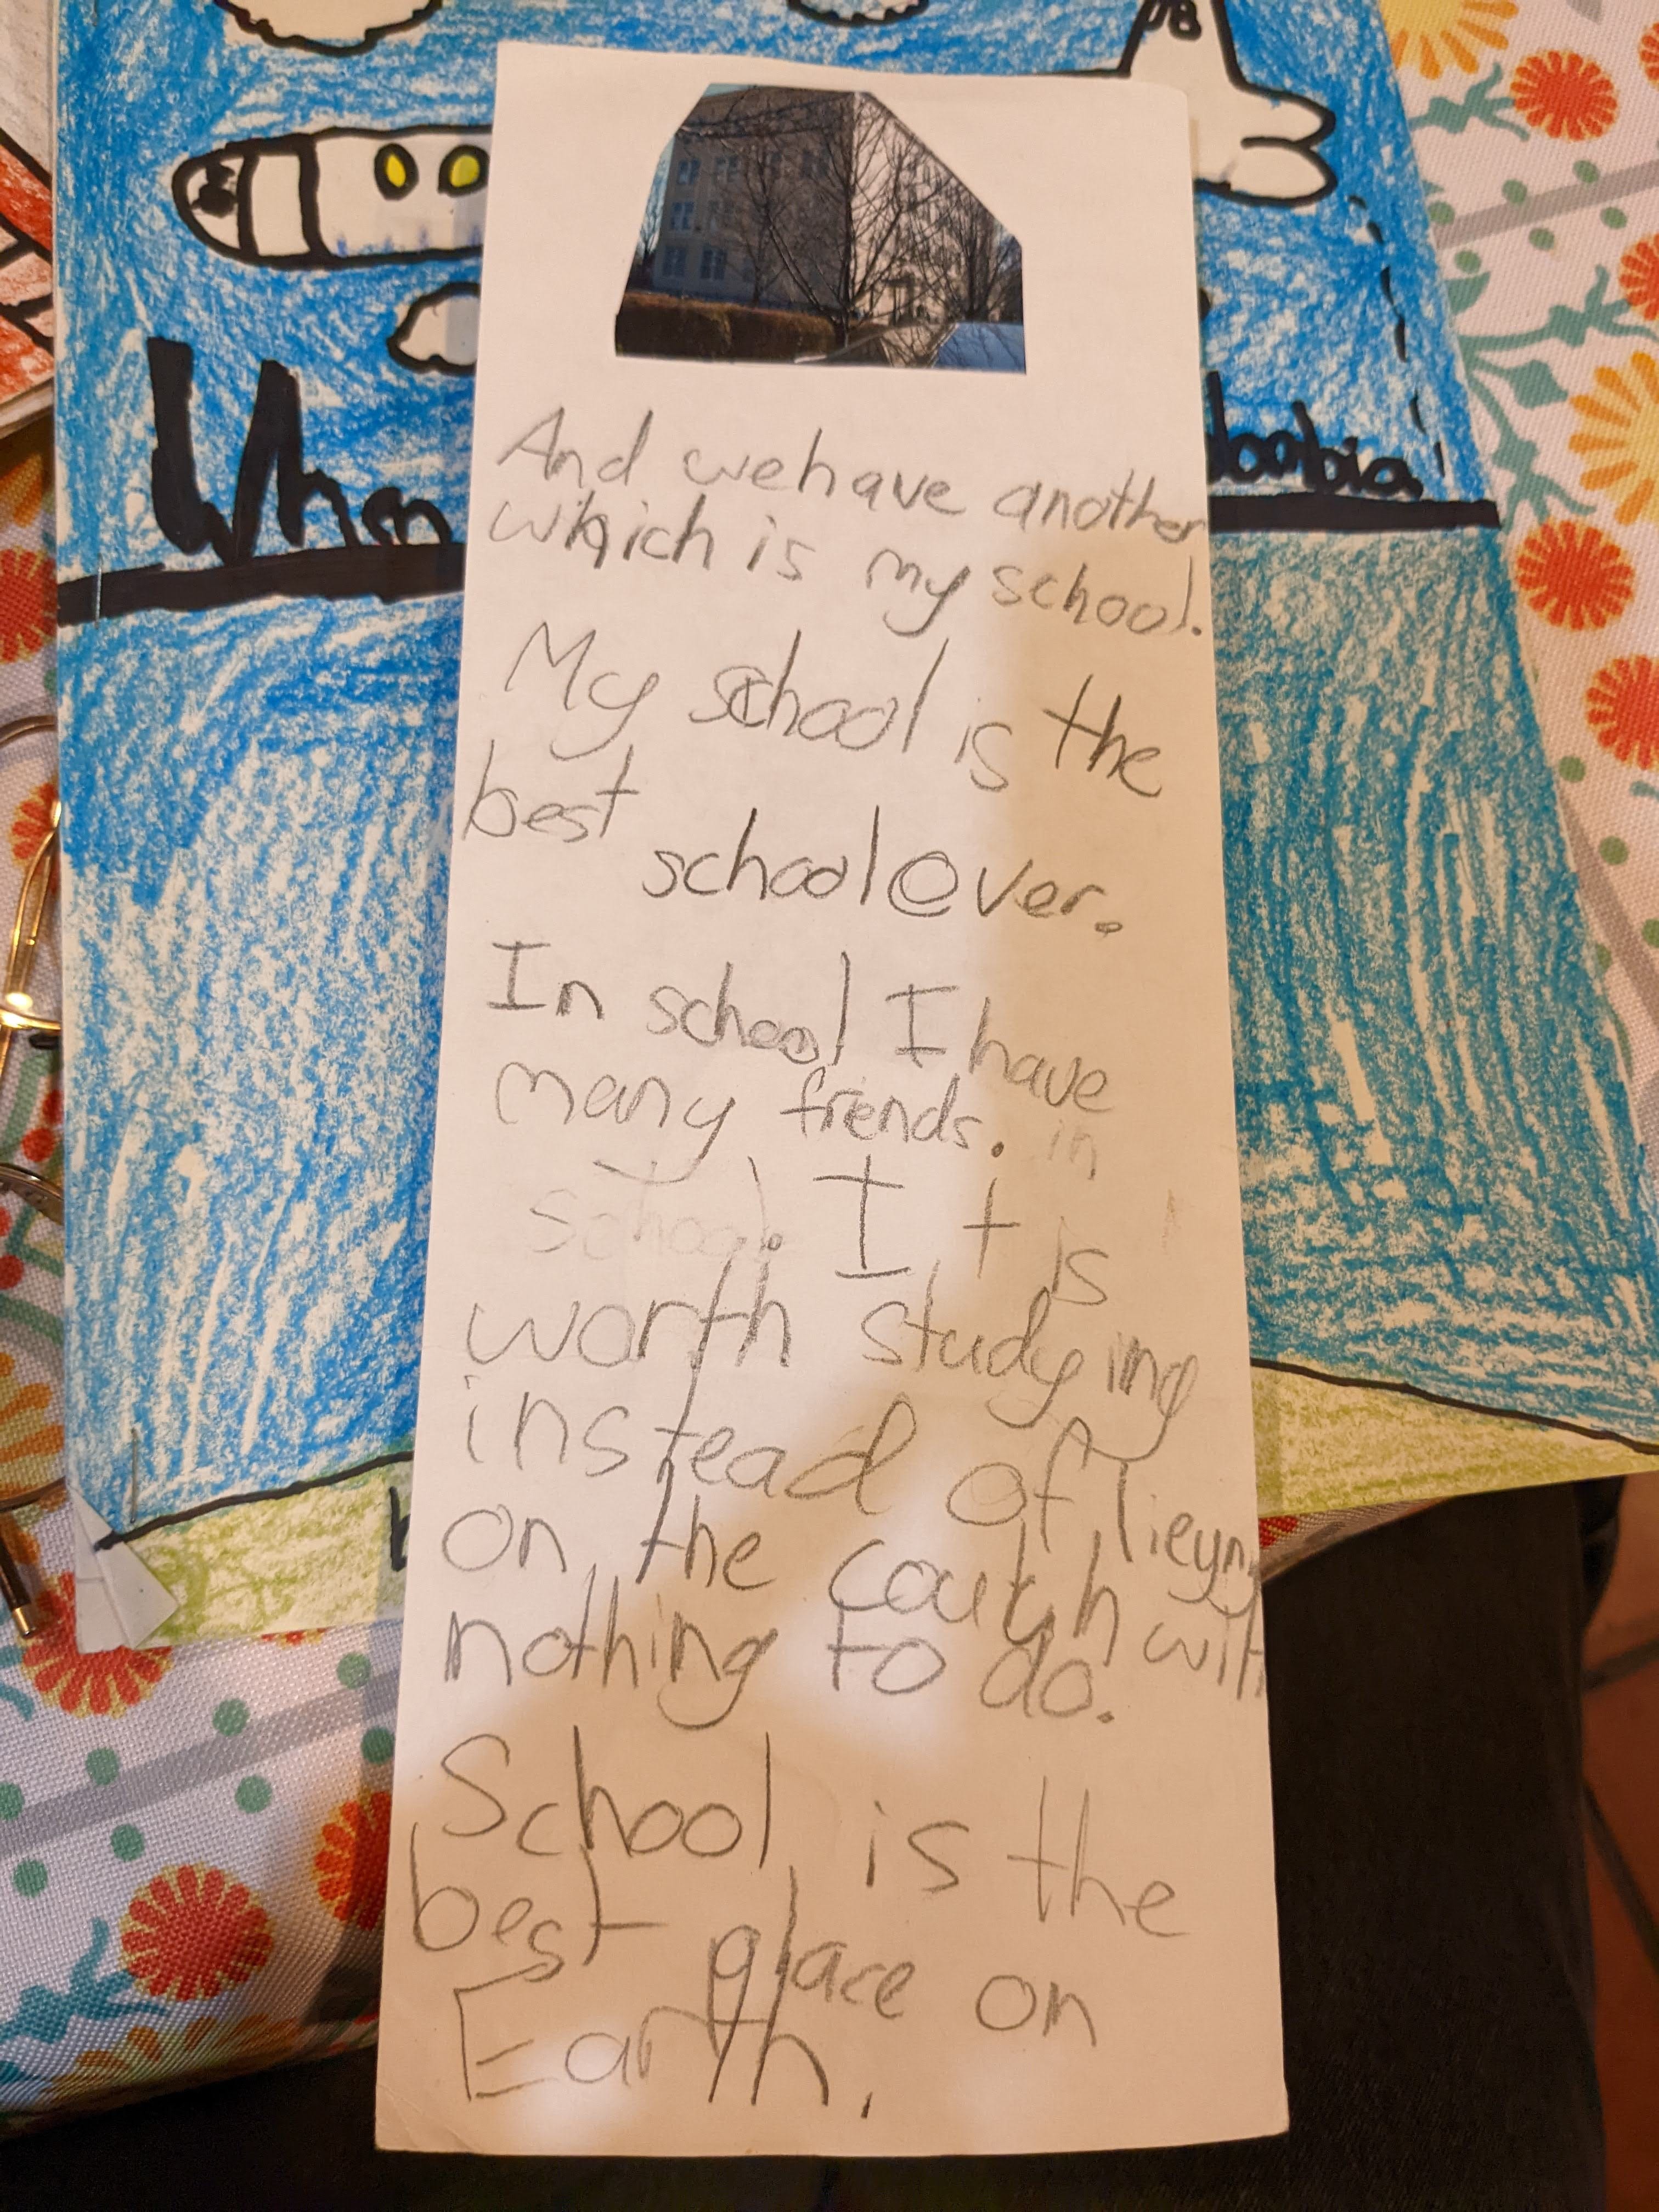 When
And we have another
which is my school.
My school is the
best
school ever.
In school I have
many friends. in
school. It is
worth studying
instead of lieyn
on the couch with
nothing to do.
School is the
best place on
Earth.